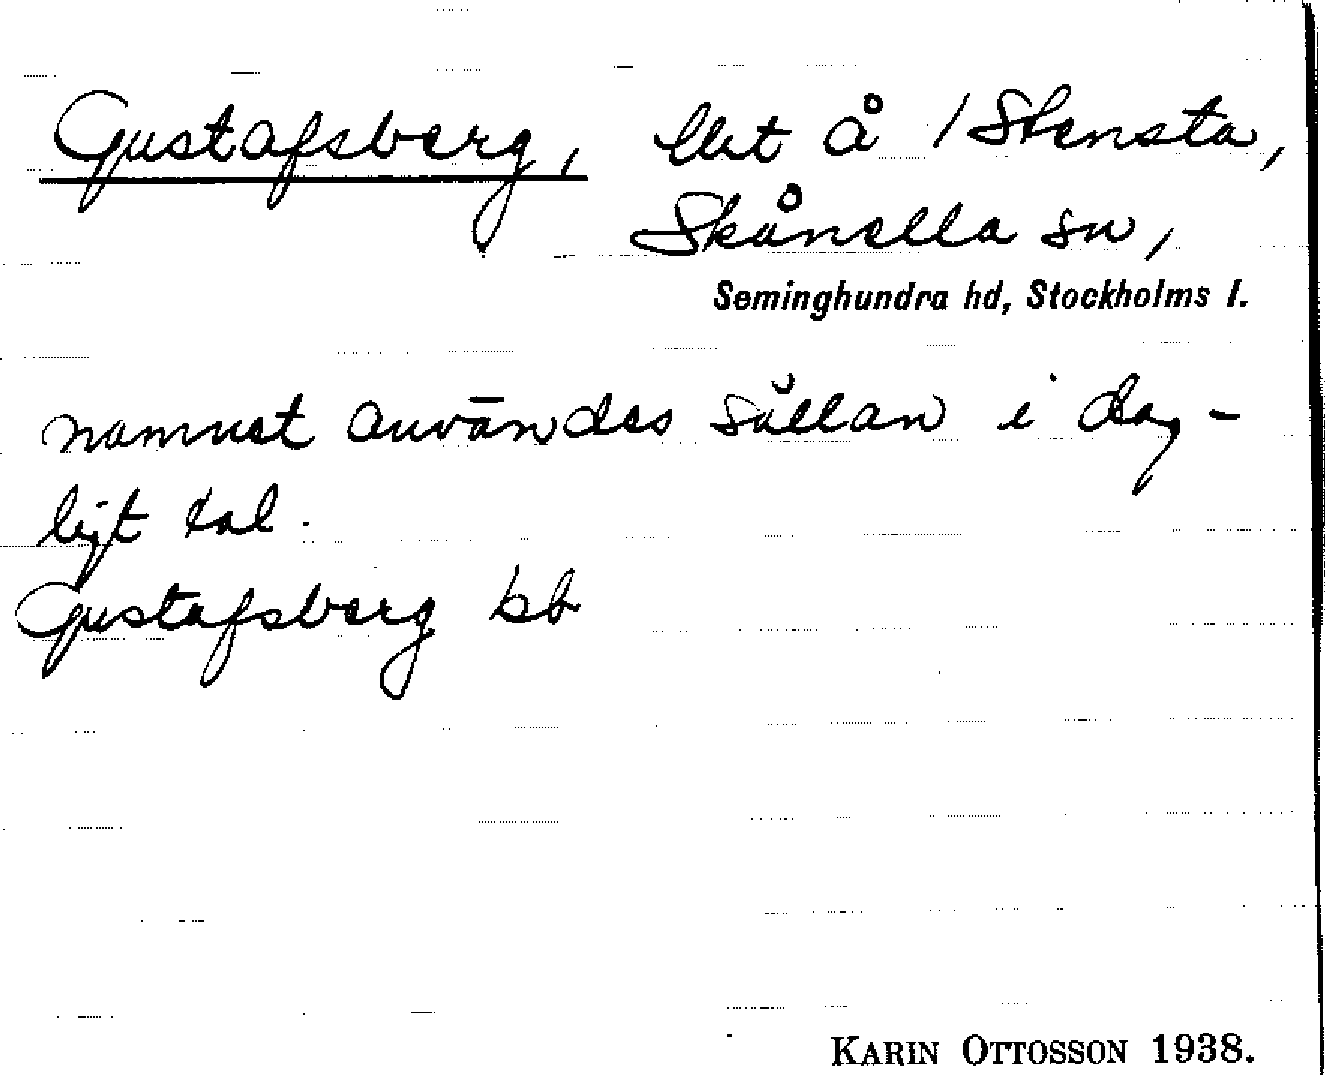 Gustafsberg, lht å 1 Stensta,
Skånella sn,
Seminghundra hd, Stockholms l.
namnet användes sällan i dag-
ligt tal.
Gustafsberg kb
KARIN OTTOSSON 1938.